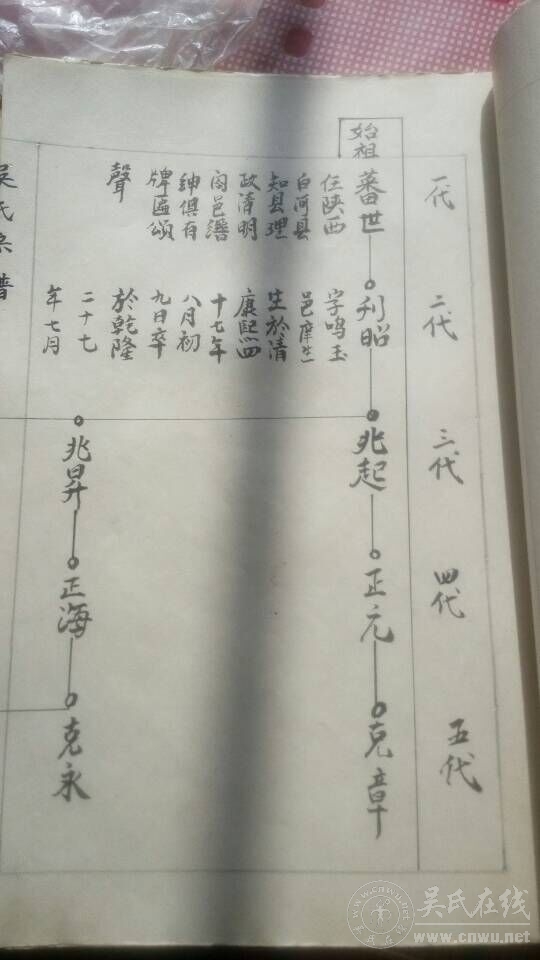 一代
二代
三代
四代
五代
始祖
蕃世
任陕西
白河县
知县理
政清明
邑
紳俱有
牌匾頌
聲
昭
字鸣玉
邑庠生
生於清
康熙四
十七年
八月初
九日卒
於乾隆
二十七
年七月
兆起
正元
克章
兆昇
正海
克永
吳氏宗譜
吴氏在线
www.cnwu.net